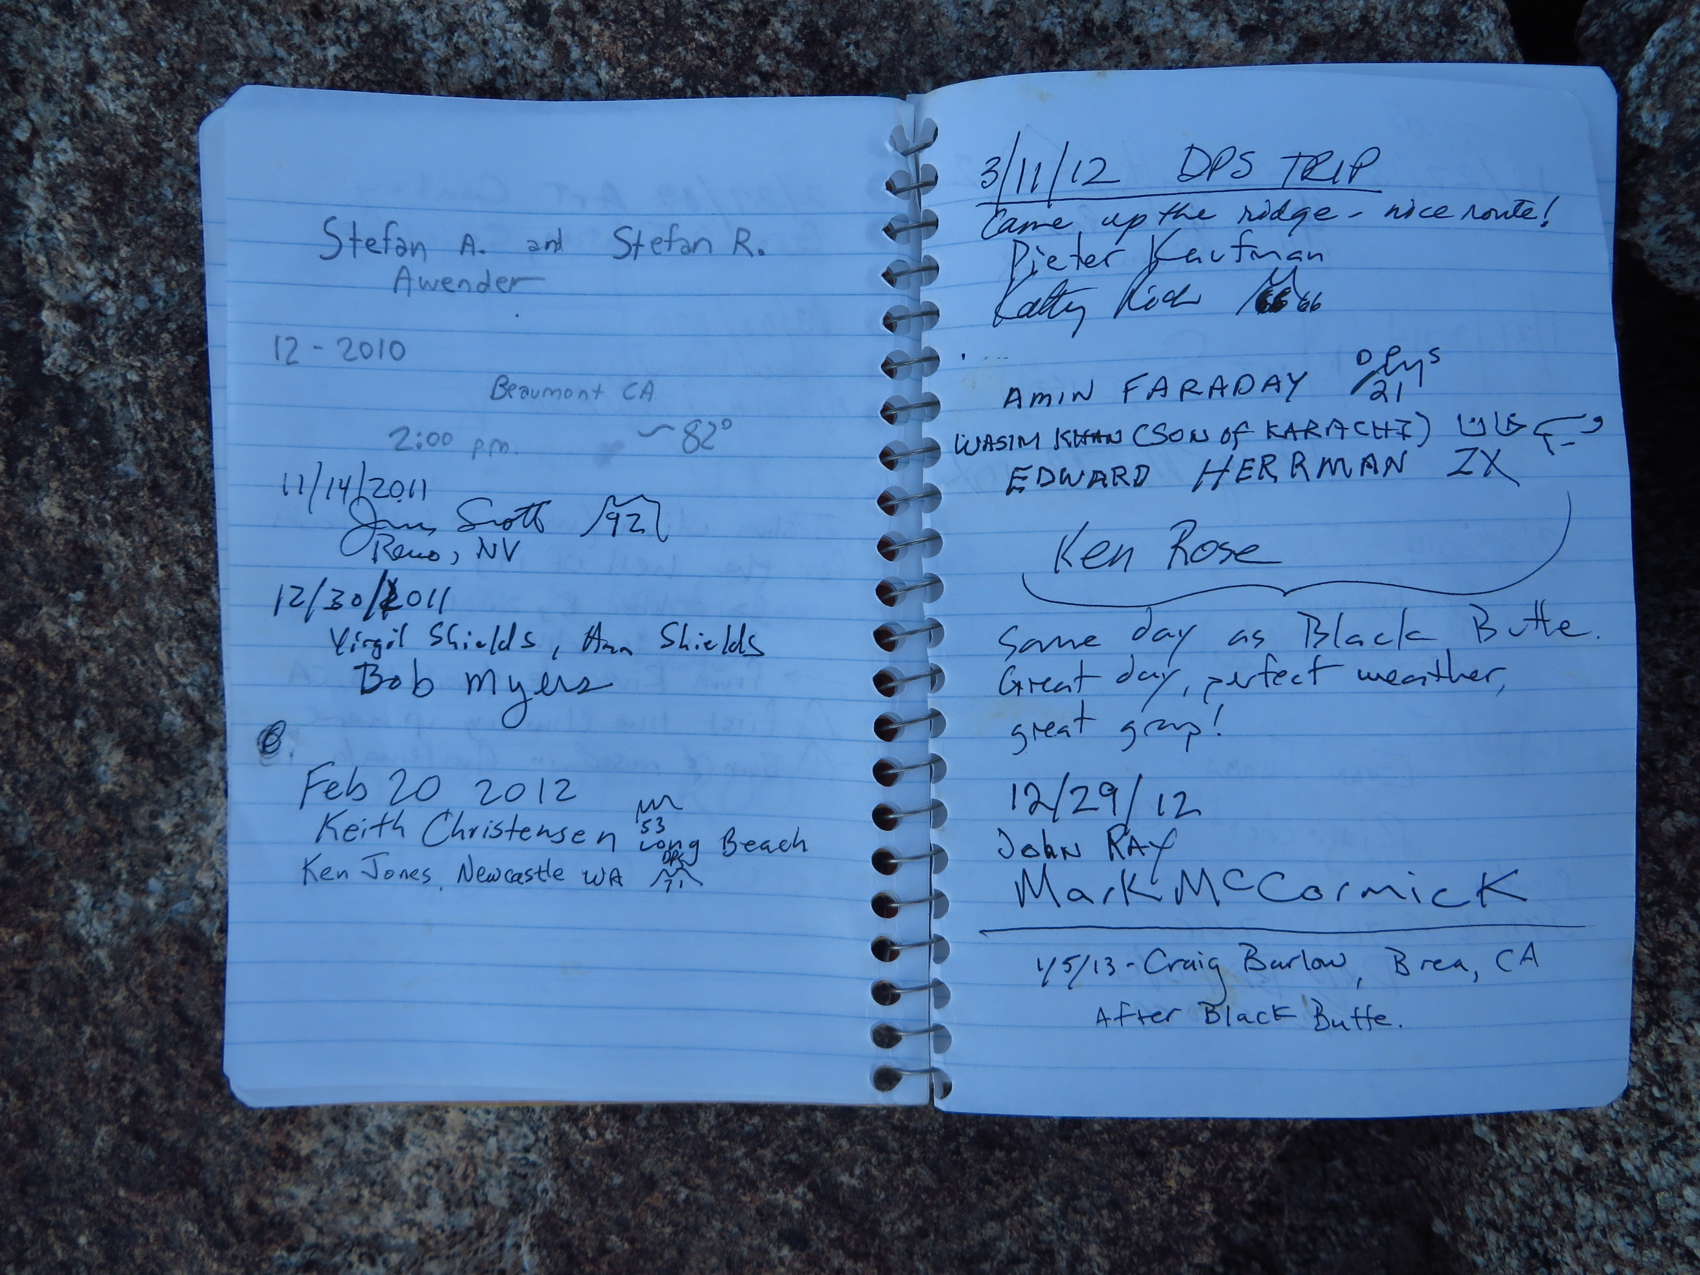 Stefan A. and Stefan R.
Awender
12-2010
Beaumont CA
2:00 pm. ~82°
11/14/2011
Scott 92
Reno, NV
12/30/2011
Virgil Shields, Ann Shields
Bob Myers
Feb 20 2012
Keith Christensen 53 Long Beach
Ken Jones, Newcastle WA DPS 71
3/11/12 DPS TRIP
Came up the ridge - nice route!
Pieter Kaufman
Kathy Rich 66
AMIN FARADAY 21
WASIM KHAN (SON OF KARACHI)
EDWARD HERRMAN ZX
Ken Rose
Same day as Black Butte.
Great day, perfect weather,
great group!
12/29/12
John RAY
Mark McCormick
1/5/13 - Craig Barlow, Brea, CA
After Black Butte.